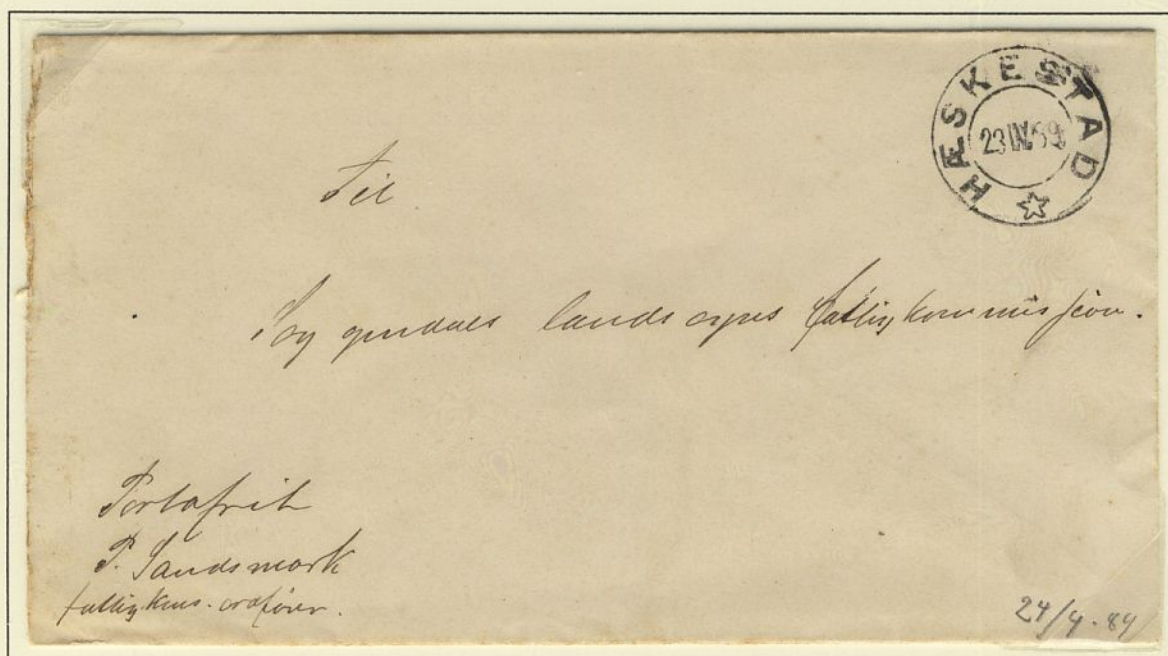 HÆSKESTAD
23 IV 89
Til
Soggendals landsogns fattigkommission.
Portofrit
P. Sandsmark
fattigkms. ordfører.
24/4-89